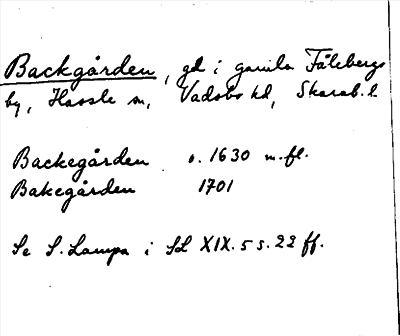 Backgården, gd i gamla Fålebergs
by, Hassle sn, Vadsbo hd, Skarab. l.
Backegården o. 1630 m.fl.
Bakegården 1701
Se S. Lampa i SL XIX. 5 s. 22 ff.